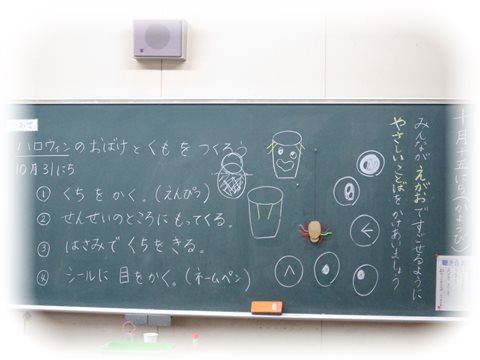 ハロウィンのおばけとくもをつくろう
10月31にち
① くちをかく。(えんぴつ)
② せんせいのところにもってくる。
③ はさみでくちをきる。
④ シールに目をかく。(ネームペン)
みんながえがおですごせるように
やさしいことばをかけあいましょう